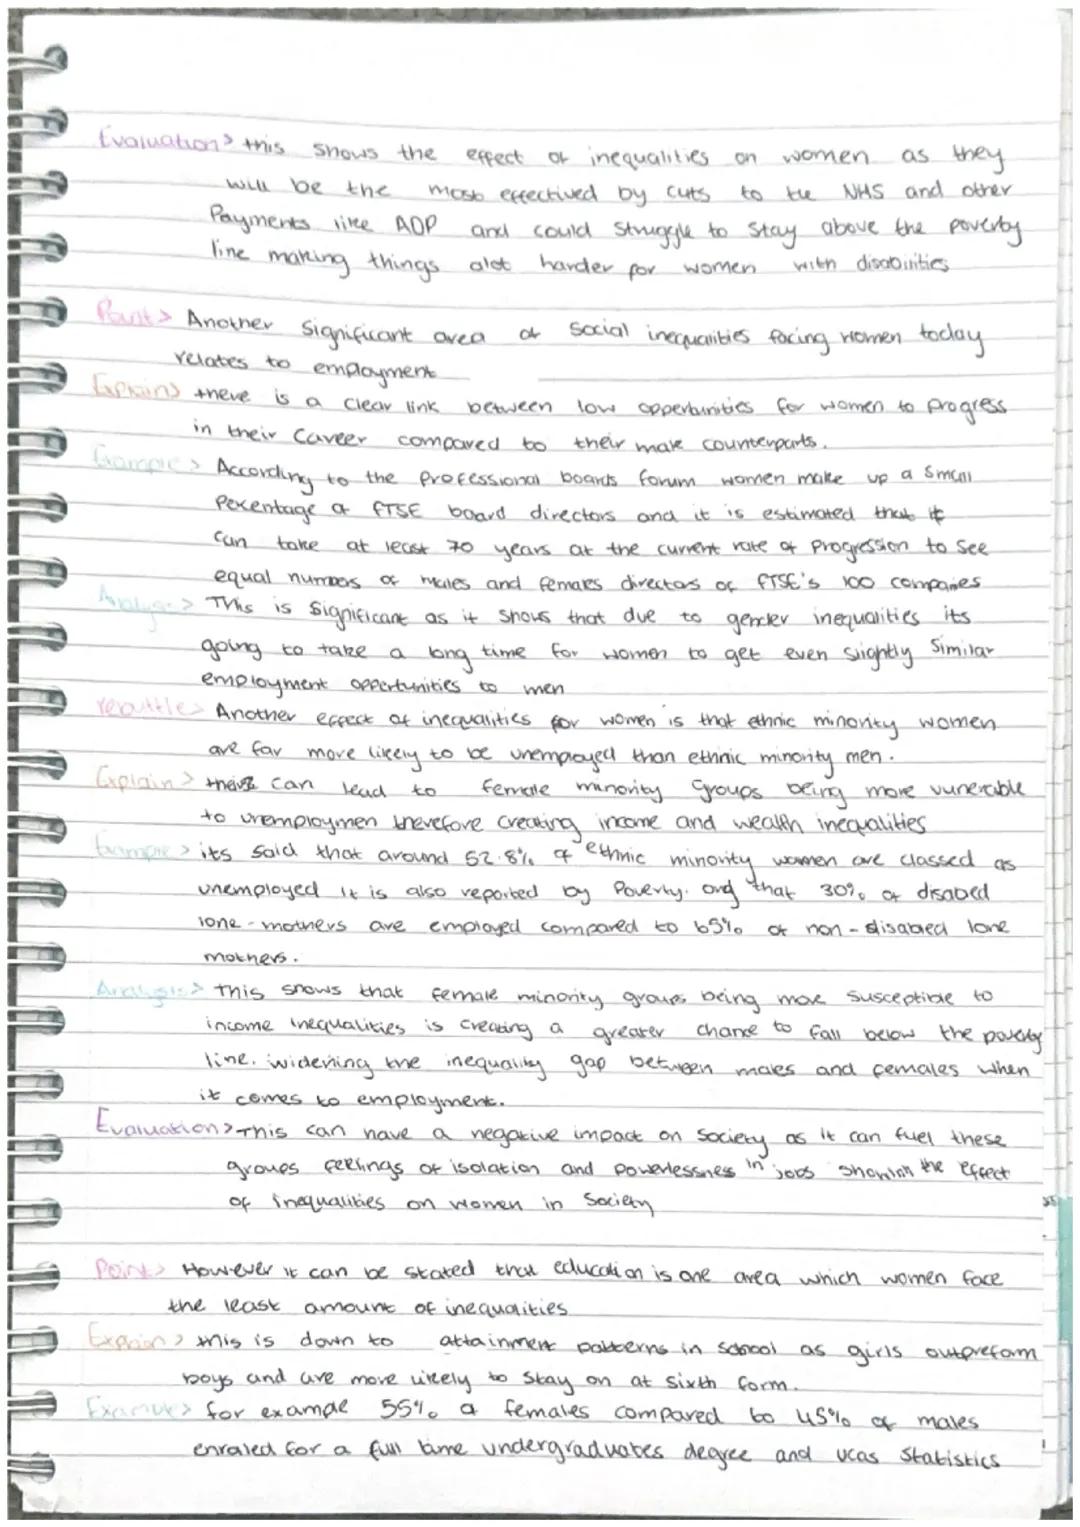 Evaluation> this shows the effect of inequalities on women as they
will be the most effectived by cuts to the NHS and other
Payments like ADP and could struggle to stay above the poverty
line making things alot harder for women with disabilities
Point> Another significant area of social inequalities facing women today
relates to employment
Explain> there is a clear link between low oppertunities for women to progress
in their career compared to their male counterparts.
Example> According to the professional boards forum women make up a small
Pecentage of FTSE board directors and it is estimated that it
can take at least 70 years at the current rate of progression to see
equal numbers of males and females directors of FTSE's 100 companies
Analyse> This is significant as it shows that due to gender inequalities its
going to take a long time for women to get even slightly similar
employment oppertunities to men
rebuttle> Another effect of inequalities for women is that ethnic minority women
are far more likely to be unemployed than ethnic minority men.
Explain> can lead to female minority groups being more vunerable
to unemploymen therefore creating income and wealth inequalities
Example> its said that around 52.8% of ethnic minority women are classed as
unemployed it is also reported by Poverty.org that 30% of disabled
lone-mothers are employed compared to 65% of non-disabled lone
mothers.
Analysis> This shows that female minority groups being more susceptible to
income inequalities is creating a greater chance to fall below the poverty
line. widening the inequality gap between males and females when
it comes to employment.
Evaluation> This can have a negative impact on society as it can fuel these
groups feelings of isolation and powerlessness in jobs showinh the effect
of inequalities on women in society
Point> However it can be stated that education is one area which women face
the least amount of inequalities
Explain> this is down to attainment patterns in school as girls outpreform
boys and are more likely to stay on at sixth form.
Example> for example 55% of females compared to 45% of males
enrolled for a full time undergraduates degree and ucas statistics